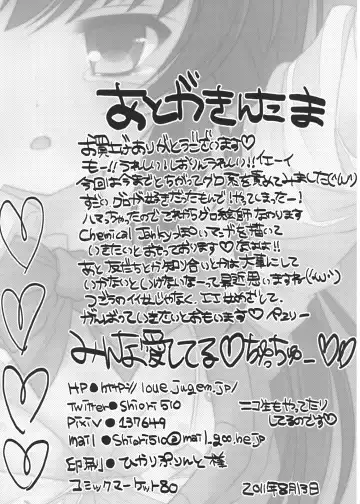 あとがきんたま
お買上げありがとうございます♡
もー!!うれしい!しおりんうれしい!!イエーイ
今回は今までとちがってグロ系を責めてみました(ω)
すごいグロが好きだったもんで!やしてまったー!
ハマちゃったのでこれからグロ絵師になります
Chemical Jankyっぽいマンガを描いて
いきたいとおもっております♡
あと友だちとか知り合いとかは大事にして
いかないといけないなーって最近思いますね
がんばっていきたいとおもいます♡
みんな愛してる♡ちゅっちゅー♡♡
HP●http://loue.jugem.jp/
Twitter●Shiori510
Pixiv●137649
mail●Shiori510@mail.goo.ne.jp
ニコ生もやってたり
してるのです♡
印刷●ひかりぷりんと様
コミックマーケット80
2011年8月13日